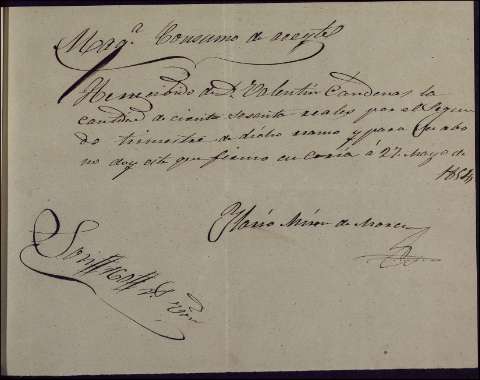 Consumo de aceyte
He recibido de Dn. Valentin Cardenas la
cantidad de ciento sesenta reales por el Segun
do trimestre de dicho ramo y para su abo
no doy este que firmo en Coria á 27 Mayo de
1854
Ylario Miron de
Son